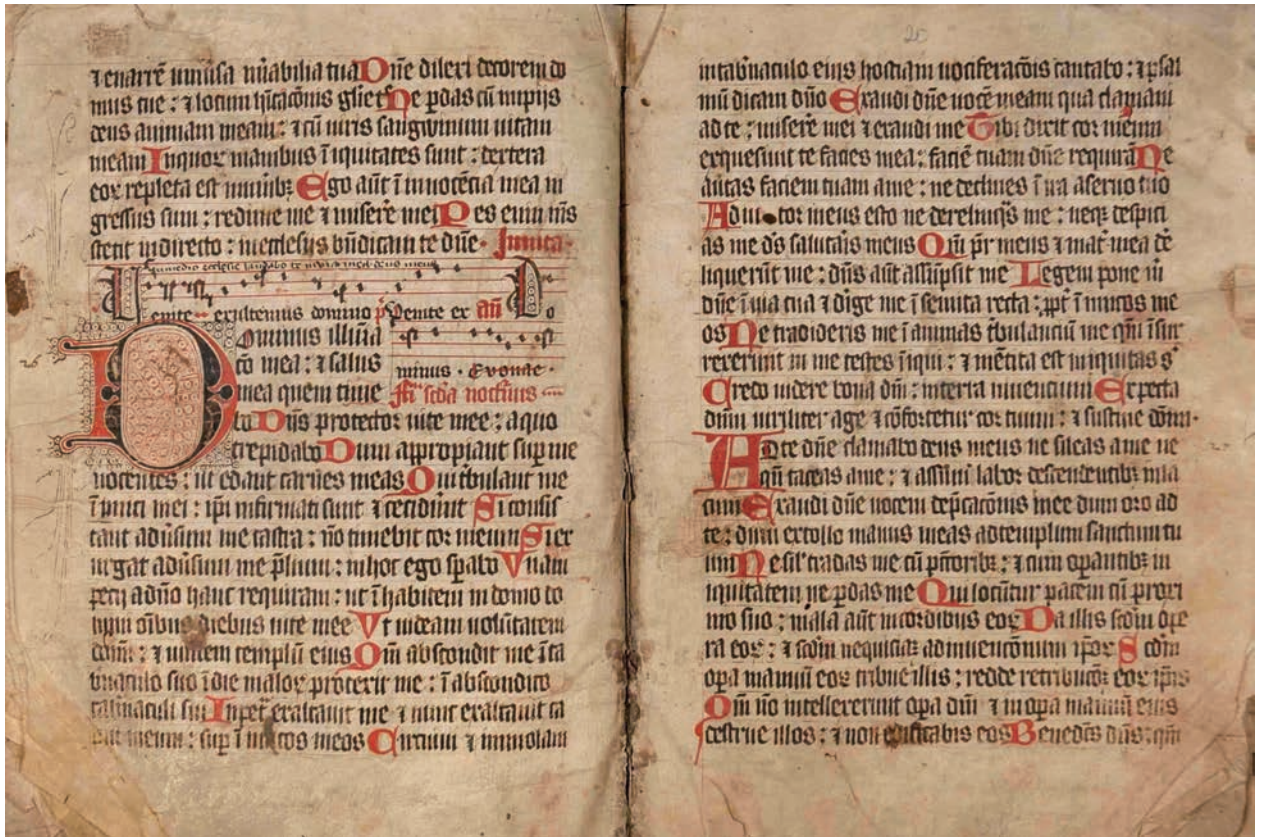 ⁊ enarrē uniūsa mīabilia tua Dñe dilexi decorem do
mus tue : ⁊ locum hītacōnis glīe Ne pdas cū impijs
deus animam meam : ⁊ cū uiris sangwinum uitam
meam In quoꝝ manibus īiquitates sunt : dextera
eoꝝ repleta est munībꝫ Ego aūt ī innocētia mea in
gressus sum : redime me ⁊ miserē mei Pes eius mīs
stetit indirecto : inecclesijs bñdicam te dñe. Inuita.
enite exultemus domino p̄ Venite ex añ Do
Dominus illūia
cō mea : ⁊ salus
minus . Evouae .
mea quem time
scda nocturnus
bo Dñs protector uite mee : aquo
trepidabo Dum appropiant supme
nocentes : ut edant carnes meas Qui tbulant me
īimici mei : ipī infirmati sunt ⁊ ceciderūt Si consis
tant adūsum me castra : nō timebit cor meum Si ex
urgat adūsum me plium : inhoc ego spabo Vnam
petij adño hanc requiram : ut īhabitem in domo do
mini oībus diebus uite mee Vt uideam uolūtatem
dom̄ : ⁊ uisitem templū eius Qm̄ abscondit me īta
bnaculo suo īdie maloꝝ protexit me : ī abscondito
tabnaculi sui Inpet̄ exaltauit me ⁊ nunc exaltauit ca
put meum : sup īimicos meos Circuiui ⁊ immolaui
20
intabnaculo eius hostiam uociferacōis cantabo : ⁊ psal
mū dicam dño Exaudi dñe uocē meam qua clamaui
ad te : miserē mei ⁊ exaudi me Tibi dixit cor meum
exquesiuit te facies mea : faciē tuam dñe requirā Ne
auertas faciem tuam ame : ne declines ī ira aseruo tuo
Adiutor meus esto ne derelinqs me : neqꝫ despici
as me ds salutāis meus Qm̄ pr̄ meus ⁊ mat̄ mea de
liquerūt me : dñs aūt assūpsit me Legem pone m̄
dñe ī uia tua ⁊ dīge me ī semita recta : ppt̄ īimicos me
os Ne tradideris me ī animas tbulanciū me qm̄ īsur
rexerunt in me testes īiqui : ⁊ mētita est iniquitas s̄
Credo uidere bona dn̄i : interra uiuencium Expecta
dnm uiriliter age ⁊ cōfortetur cor tuum : ⁊ sustine dom̄.
Adte dñe clamabo deus meus ne sileas ame ne
qn̄ taceas ame : ⁊ assimilabor descendentibꝫ inla
cum Exaudi dñe uocem depcacōnis mee dum oro ad
te : dum extollo manus meas adtemplum sanctum tu
um Ne sil' tradas me cū pctoribꝫ : ⁊ cum opantibꝫ in
iquitatem ne pdas me Qui locūtur pacem cū proxi
mo suo : mala aūt incordibus eoꝝ Da illis scdm ope
ra eoꝝ : ⁊ scdm nequiciā adinuencōnum ipoꝝ Scdm
opa manuū eoꝝ tribue illis : redde retribucōē eoꝝ ipīs
Qm̄ nō intellexerunt opa dn̄i ⁊ in opa manuū eius
destrue illos : ⁊ non edificabis eos Benedcs dñs : qm̄